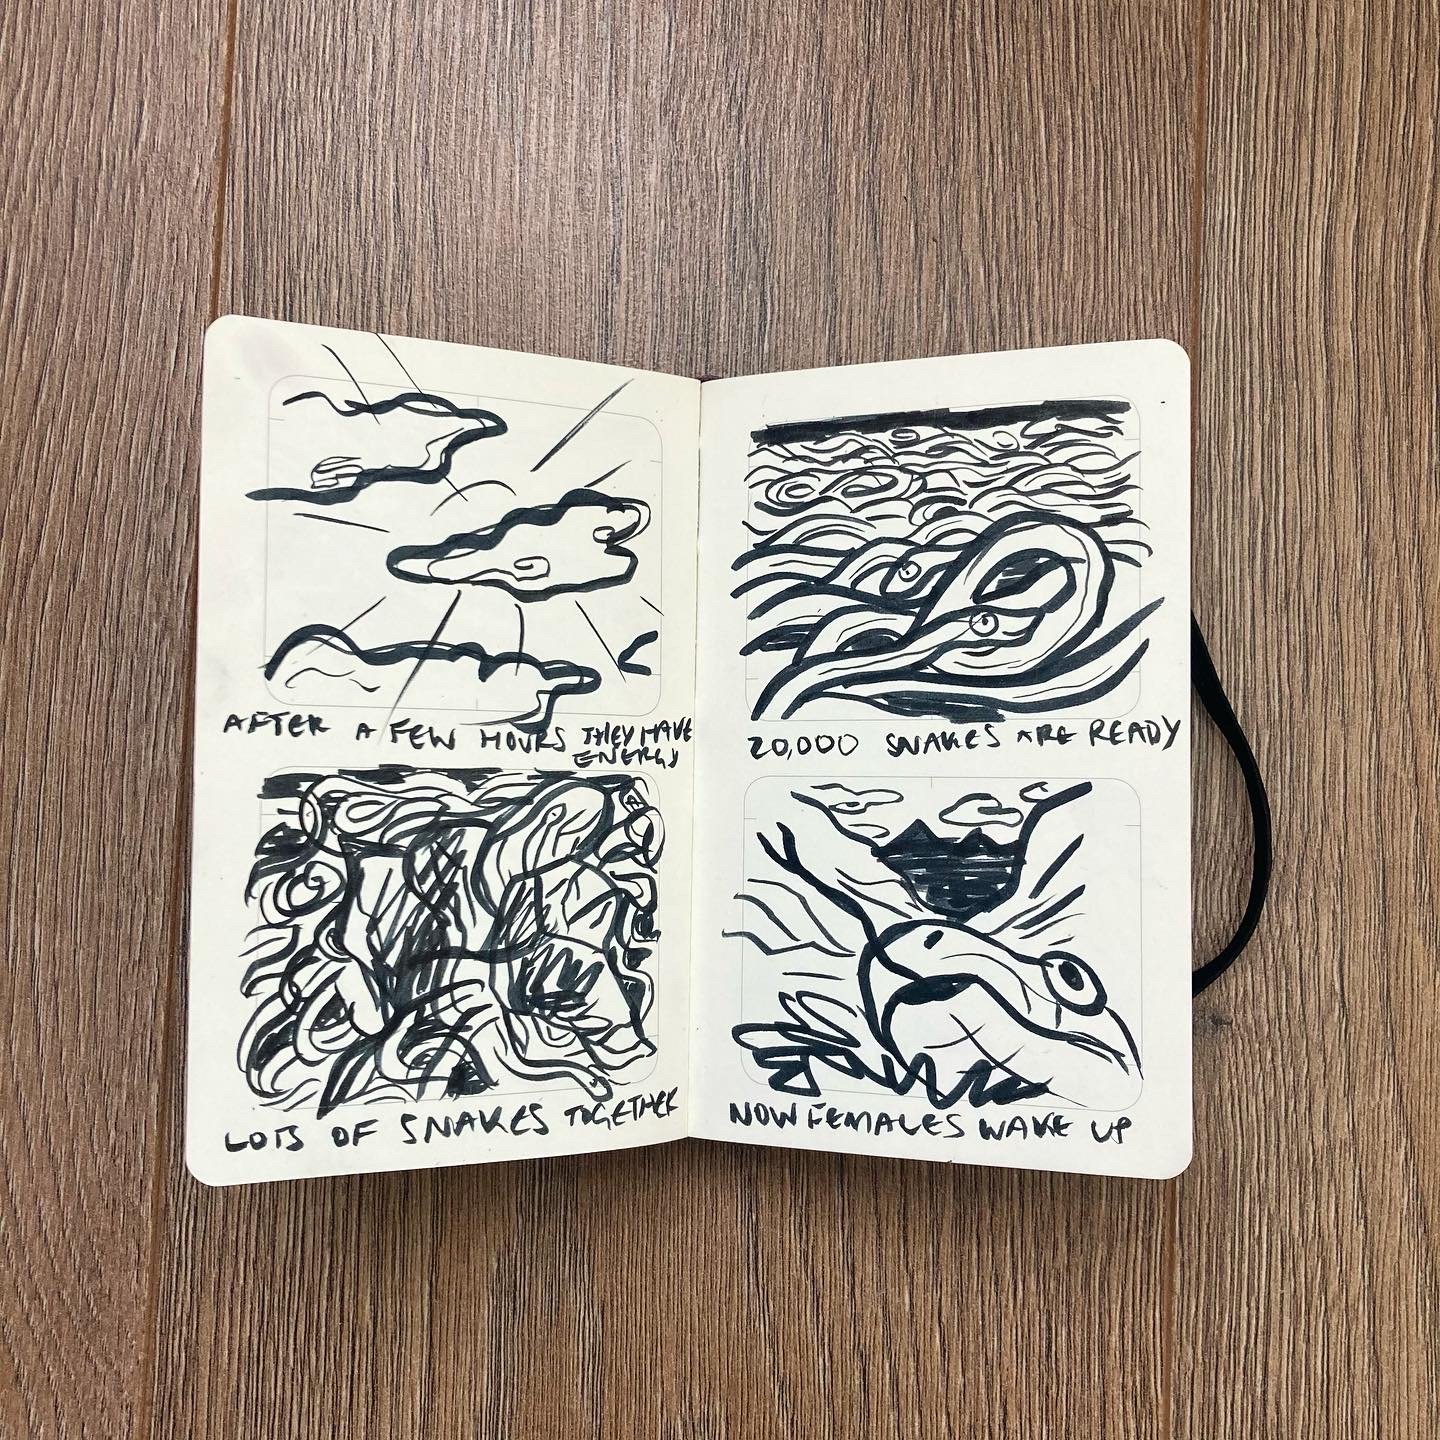 AFTER A FEW HOURS THEY HAVE
ENERGY
LOTS OF SNAKES TOGETHER
20,000 SNAKES ARE READY
NOW FEMALES WAKE UP